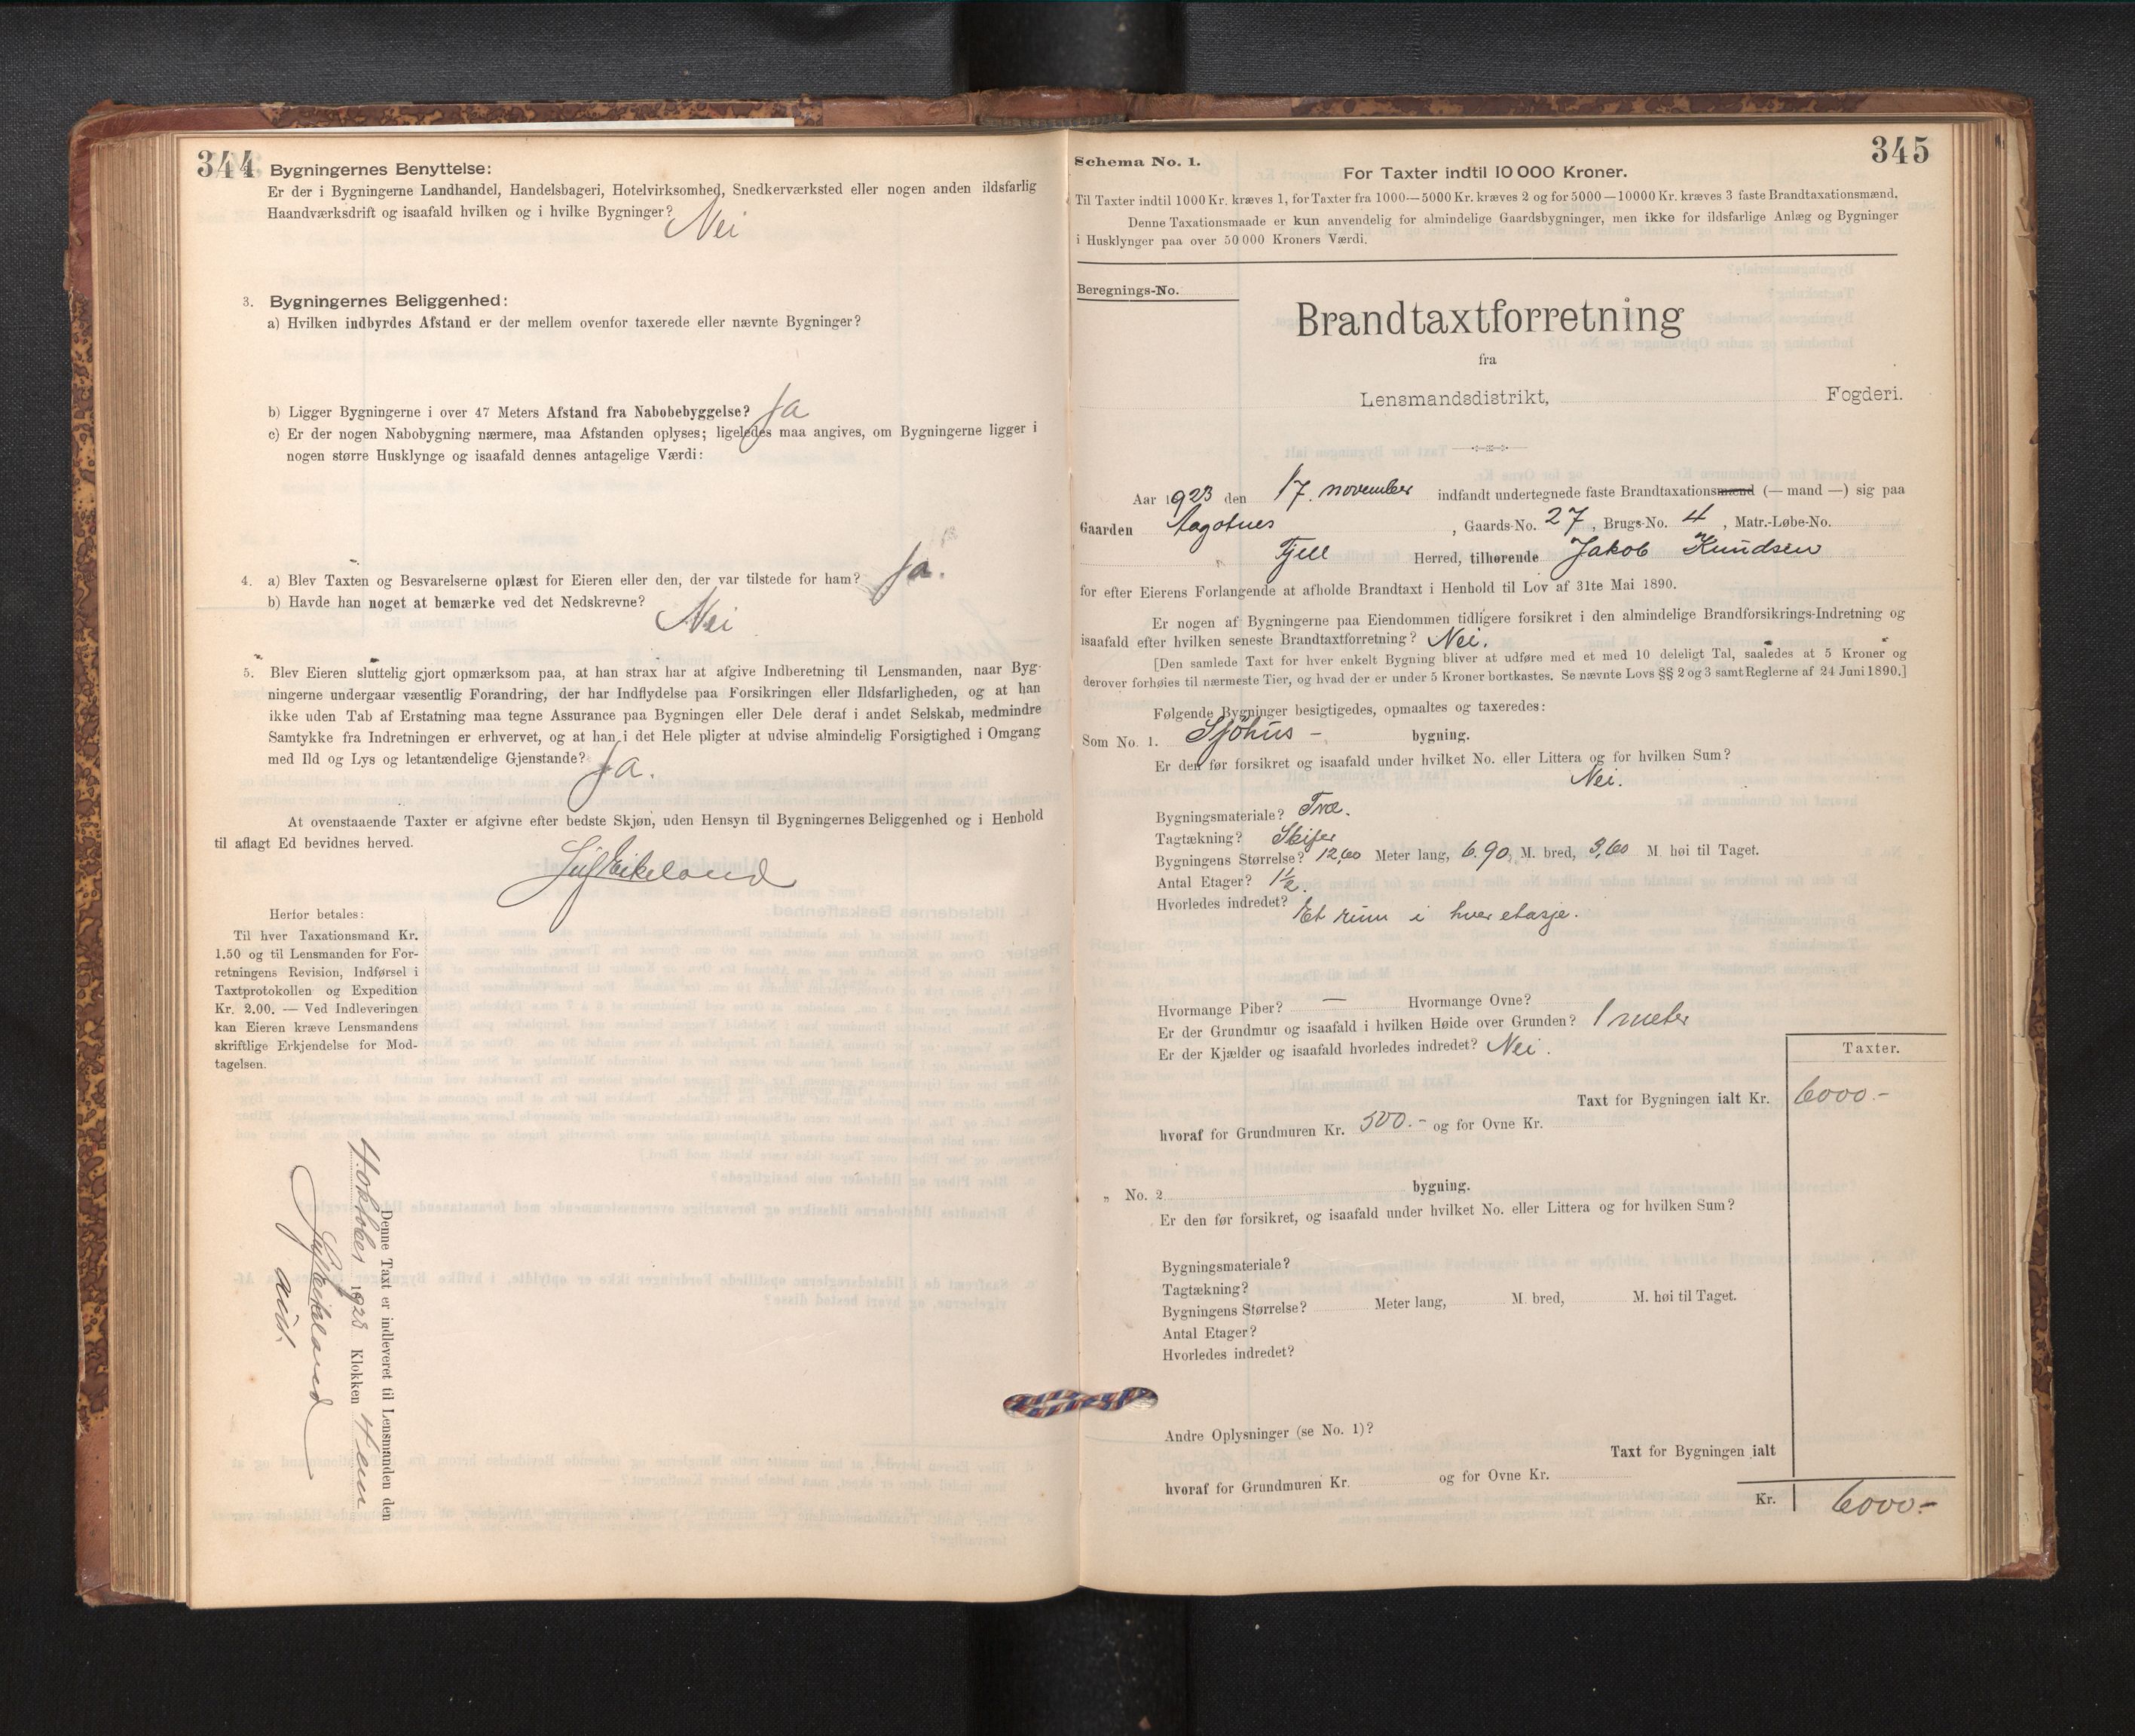 344
Bygningernes Benyttelse:
Er der i Bygningerne Landhandel, Handelsbageri, Hotelvirksomhed, Snedkerværksted eller nogen anden ildsfarlig
Haandværksdrift og isaafald hvilken og i hvilke Bygninger? Nei
3. Bygningernes Beliggenhed:
a) Hvilken indbyrdes Afstand er der mellem ovenfor taxerede eller nævnte Bygninger?
b) Ligger Bygningerne i over 47 Meters Afstand fra Nabobebyggelse? Ja
c) Er der nogen Nabobygning nærmere, maa Afstanden oplyses; ligeledes maa angives, om Bygningerne ligger i
nogen større Husklynge og isaafald dennes antagelige Værdi:
4. a) Blev Taxten og Besvarelserne oplæst for Eieren eller den, der var tilstede for ham? Ja.
b) Havde han noget at bemærke ved det Nedskrevne? Nei
5. Blev Eieren sluttelig gjort opmærksom paa, at han strax har at afgive Indberetning til Lensmanden, naar Byg-
ningerne undergaar væsentlig Forandring, der har Indflydelse paa Forsikringen eller Ildsfarligheden, og at han
ikke uden Tab af Erstatning maa tegne Assurance paa Bygningen eller Dele deraf i andet Selskab, medmindre
Samtykke fra Indretningen er erhvervet, og at han i det Hele pligter at udvise almindelig Forsigtighed i Omgang
med Ild og Lys og letantændelige Gjenstande? Ja.
At ovenstaaende Taxter er afgivne efter bedste Skjøn, uden Hensyn til Bygningernes Beliggenhed og i Henhold
til aflagt Ed bevidnes herved.
Eikeland
Herfor betales:
Til hver Taxationsmand Kr.
1.50 og til Lensmanden for For-
retningens Revision, Indførsel i
Taxtprotokollen og Expedition
Kr. 2.00. — Ved Indleveringen
kan Eieren kræve Lensmandens
skriftlige Erkjendelse for Mod-
tagelsen.
Denne Taxt er indleveret til Lensmanden den
4. oktober 1928 Klokken
Eikeland
345
Schema No. 1.
For Taxter indtil 10 000 Kroner.
Til Taxter indtil 1000 Kr. kræves 1, for Taxter fra 1000—5000 Kr. kræves 2 og for 5000—10000 Kr. kræves 3 faste Brandtaxationsmænd.
Denne Taxationsmaade er kun anvendelig for almindelige Gaardsbygninger, men ikke for ildsfarlige Anlæg og Bygninger
i Husklynger paa over 50 000 Kroners Værdi.
Beregnings-No.
Brandtaxtforretning
fra
Lensmandsdistrikt, Fogderi.
Aar 1923 den 17. november indfandt undertegnede faste Brandtaxationsmænd (— mand —) sig paa
Gaarden Aagotnes, Gaards-No. 27, Brugs-No. 4, Matr.-Løbe-No.
Fjell Herred, tilhørende Jakob Knudsen
for efter Eierens Forlangende at afholde Brandtaxt i Henhold til Lov af 31te Mai 1890.
Er nogen af Bygningerne paa Eiendommen tidligere forsikret i den almindelige Brandforsikrings-Indretning og
isaafald efter hvilken seneste Brandtaxtforretning? Nei.
[Den samlede Taxt for hver enkelt Bygning bliver at udføre med et med 10 deleligt Tal, saaledes at 5 Kroner og
derover forhøies til nærmeste Tier, og hvad der er under 5 Kroner bortkastes. Se nævnte Lovs §§ 2 og 3 samt Reglerne af 24 Juni 1890.]
Følgende Bygninger besigtigedes, opmaaltes og taxeredes:
Som No. 1. Sjöhus - bygning.
Er den før forsikret og isaafald under hvilket No. eller Littera og for hvilken Sum?
Nei.
Bygningsmateriale? Træ.
Tagtækning? Skifer
Bygningens Størrelse? 12,60 Meter lang, 6.90, M. bred, 3,60 M. høi til Taget.
Antal Etager? 1½.
Hvorledes indredet? Et rum i hver etasje.
Hvormange Piber? — Hvormange Ovne?
Er der Grundmur og isaafald i hvilken Høide over Grunden? 1 meter
Er der Kjælder og isaafald hvorledes indredet? Nei.
Taxter.
Taxt for Bygningen ialt Kr. 6000.-
hvoraf for Grundmuren Kr. 500.- og for Ovne Kr.
„ No. 2 bygning.
Er den før forsikret, og isaafald under hvilket No. eller Littera og for hvilken Sum?
Bygningsmateriale?
Tagtækning?
Bygningens Størrelse? Meter lang, M. bred, M. høi til Taget.
Antal Etager?
Hvorledes indredet?
Andre Oplysninger (se No. 1)?
Taxt for Bygningen ialt
hvoraf for Grundmuren Kr. og for Ovne Kr.
Kr. 6000-